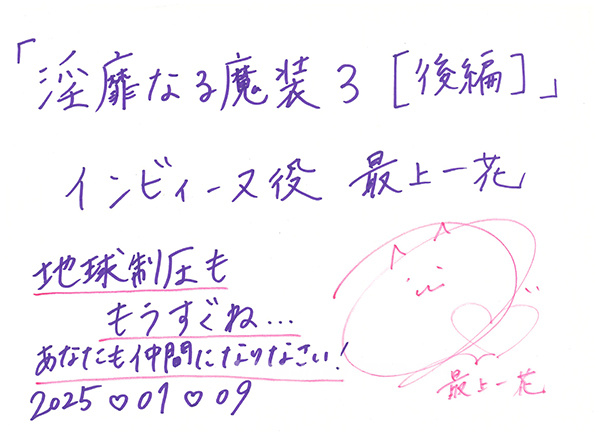 「淫靡なる魔装3［後編］」
インビィーヌ役 最上一花
地球制圧も
もうすぐね…
あなたも仲間になりなさい!
2025♡01♡09
最上一花